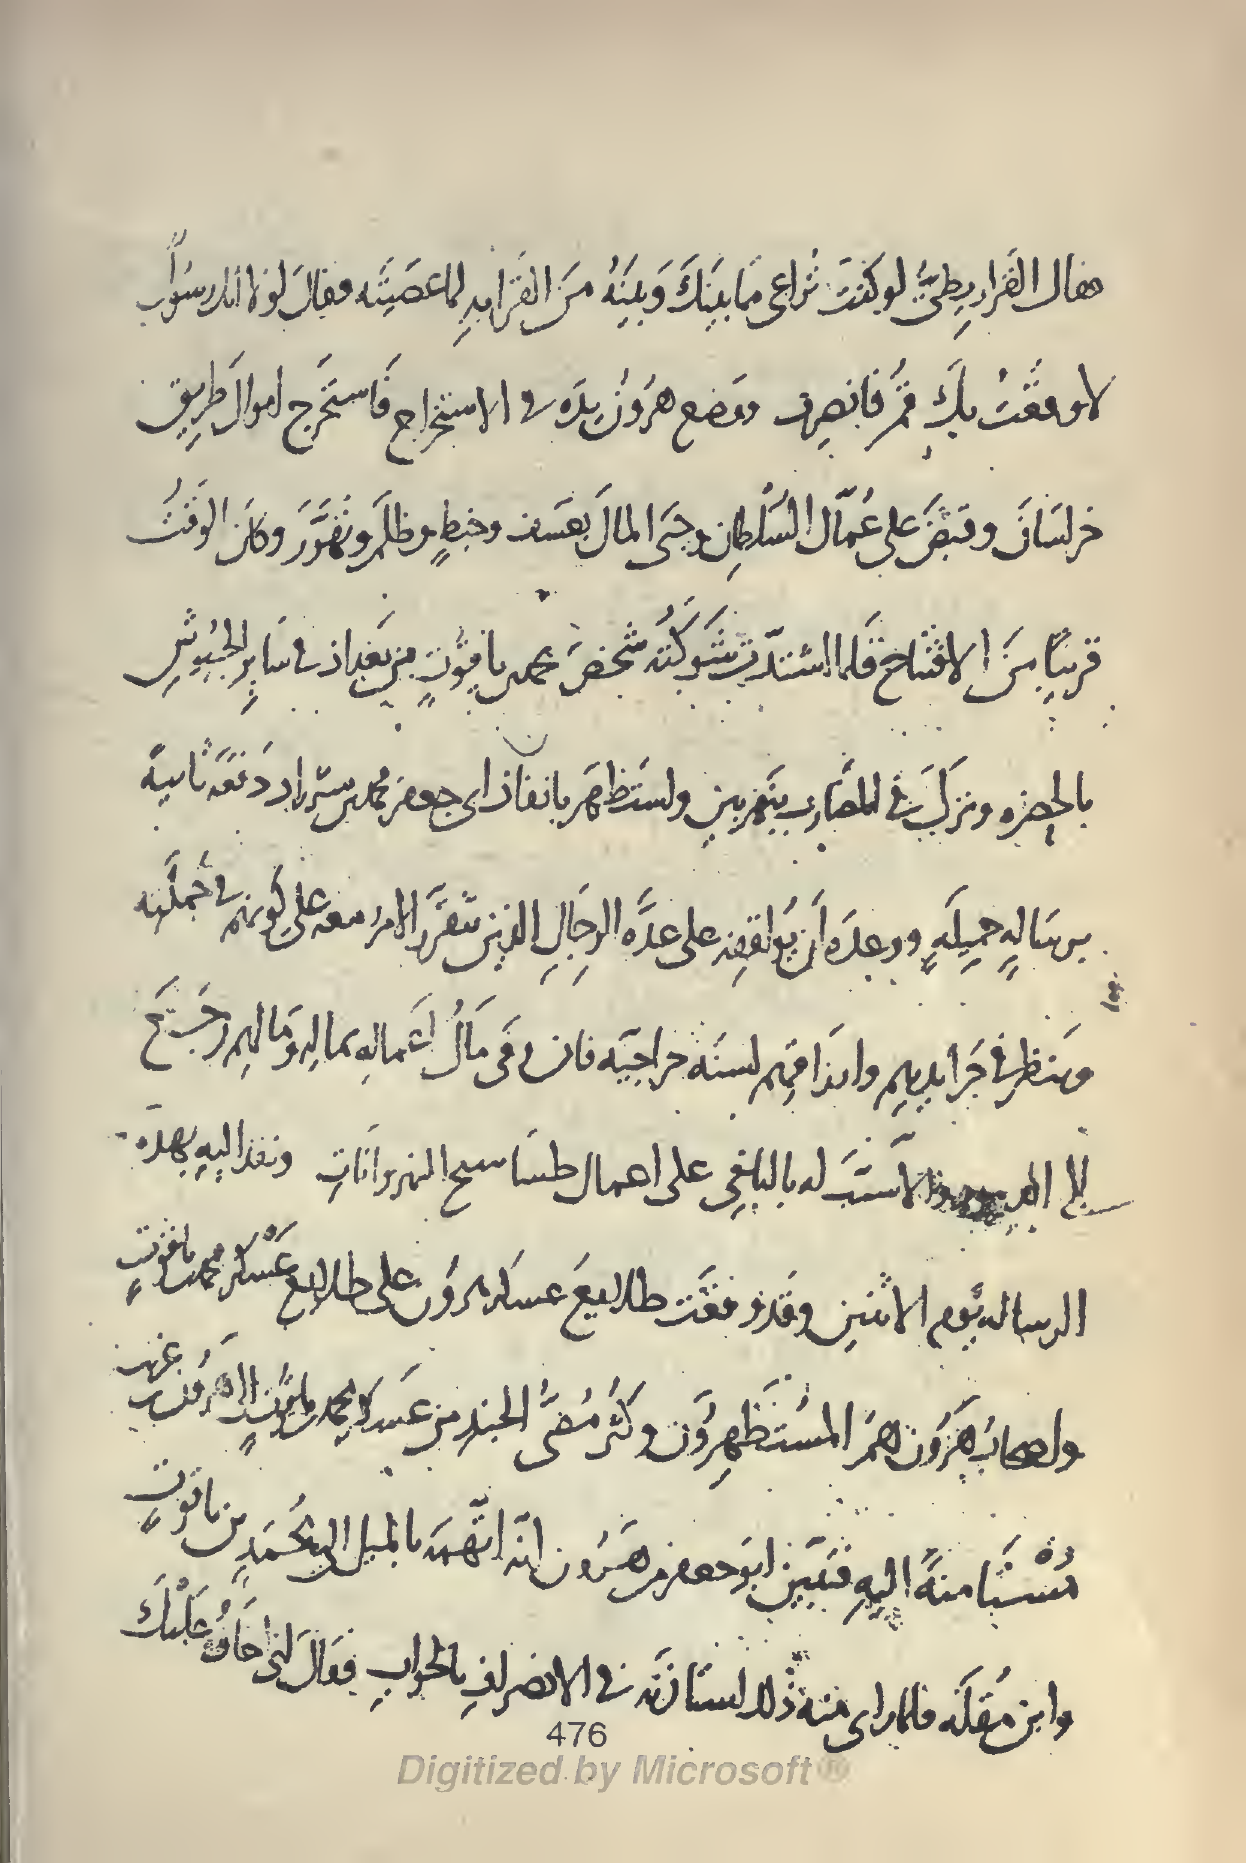 فقال القراريطىّ لو كنتَ تُراعى ما بينَكَ وَبينَهُ منَ القَرابهِ لما عصَيتَه فقالَ لولا أنك رسُولٌ
لاوقعْتُ بكَ قُم فَانصرِف ووَضع هرُونُ يدَه فى الاستخراج فَاستخرج اموال طَرِيقِ
خراسَانَ وقبَضَ على عُمّال السُلطانِ وجَبَى المالَ بعَسف وخبطٍ وظلمٍ وتهَوُّر وكانَ الوَقتُ
قريبًا منَ الافتتاح فلما اشتدّت شَوكتُه شخصَ محمد بن ياقُوتٍ من بَغداذ فى سَايرِ الجُيُوشِ
بالحضره ونزلَ فى المضَارب بنَهر بِين واستَظهَر بانفاذ ابى جعفر محمد بن شيرزاد دَفعَه ثانيةً
برسَالهٍ جميلَهٍ ووعدَه أن يُوافقه على عدَّه الرجَالِ الذين يتَقرَّر الامر معه على كَونهم فى جُملته
وينظر فى جَرايدِهِم وارزاقهم لسنَه خراجيّه فان وفَى مَالُ اعمَالِه بمالِه وَمالهم رَجَعَ
الا استَتَبَ له بالباقى على اعمال طسَاسيج النهروانَاتِ ونفذ اليهِ بهذه
الرساله يَوم الاثنينِ وقَد وقَعَت طلايعُ عسكر هرُون على طلايعِ عَسْكرِ محمد بن ياقوتٍ
واصحابُ هَرُون هُمُ المُستظهِرُون وكَثُر مُضىُّ الجُندِ من عَسكر محمد بن ياقُوتٍ الى هرُون بن غريب
مُسْتَامِنةً اليهِ فتبيّن ابو جعفر من هَرُون انّه اتّهَمَه بالميل الى مُحمَدِ بن ياقوتٍ
وابن مُقلَه فلما راى منه ذلك استَاذنَه فى الانصرافِ بالجوابِ فقالَ لى اخَافُ عليْكَ
476
Digitized by Microsoft ®